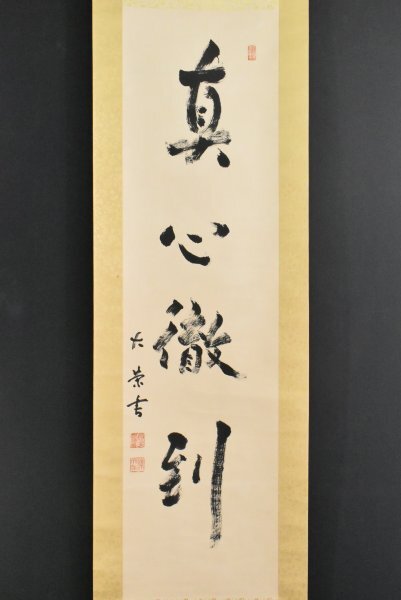 真心徹到
大榮書